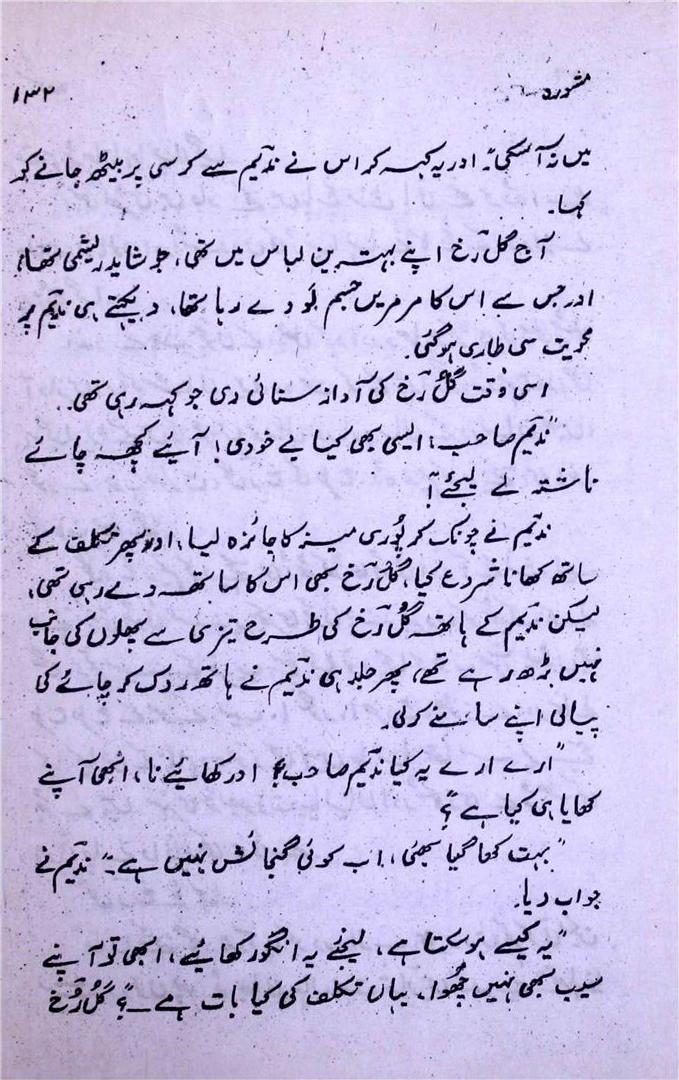 مشورہ
۱۳۲
میں نہ آسکی"۔ اور یہ کہہ کر اس نے ندیم سے کرسی پر بیٹھ جانے کو
کہا۔
آج گل رُخ اپنے بہترین لباس میں تھی، جو شاید ریشمی تھا،
اور جس سے اس کا مرمریں جسم لَو دے رہا تھا، دیکھتے ہی ندیم پر
محویت سی طاری ہوگئی۔
اسی وقت گل رُخ کی آواز سنائی دی جو کہہ رہی تھی۔
"ندیم صاحب! ایسی بھی کیا بے خودی! آئیے کچھ چائے
ناشتہ لے لیجئے!"
ندیم نے چونک کر پوری میز کا جائزہ لیا، اور پھر تکلف کے
ساتھ کھانا شروع کیا، گُل رُخ بھی اس کا ساتھ دے رہی تھی،
لیکن ندیم کے ہاتھ گُل رُخ کی طرح تیزی سے پھلوں کی جانب
نہیں بڑھ رہے تھے، پھر جلد ہی ندیم نے ہاتھ روک کر چائے کی
پیالی اپنے سامنے کرلی۔
"ارے ارے یہ کیا ندیم صاحب؟ اور کھائیے نا، ابھی آپنے
کھایا ہی کیا ہے؟"
"بہت کھا گیا بھئی، اب کوئی گنجائش نہیں ہے۔" ندیم نے
جواب دیا۔
"یہ کیسے ہوسکتا ہے، لیجئے یہ انگور کھائیے، ابھی تو آپنے
سیب بھی نہیں چُھوا، یہاں تکلف کی کیا بات ہے ـــ؟" گُل رُخ